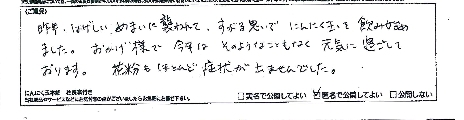 (ご感想)
昨年、はげしいめまいに襲われて、すがる思いでにんにく玉を飲み始め
ました。おかげ様で今年はそのようなこともなく元気に過ごして
おります。花粉もほとんど症状が出ませんでした。
にんにく玉本舗 社長宛行き
□実名で公開してよい ☑匿名で公開してよい □公開しない